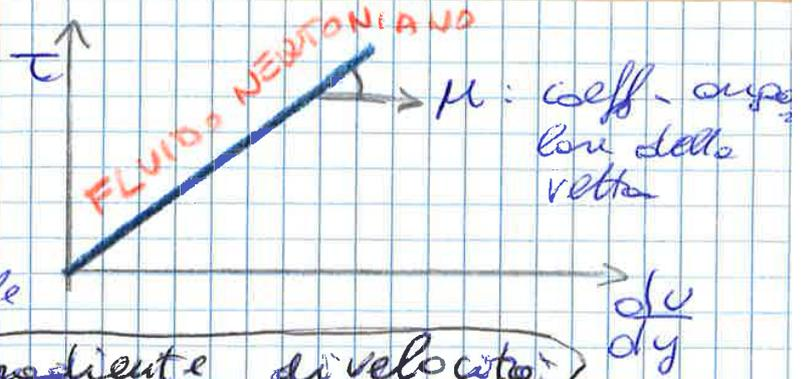 FLUIDO NEWTONIANO
τ
μ: coeff. ango
lare della
retta
du
dy
diente di velocità